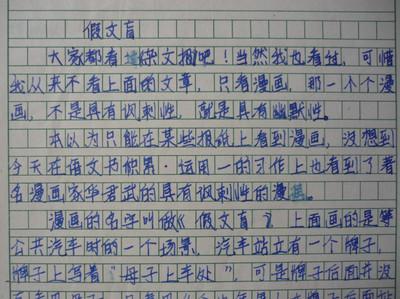 假文盲
大家都看过杂文报吧!当然我也看过,可惜
我从来不看上面的文章,只看漫画,那一个个漫
画,不是具有讽刺性,就是具有幽默性。
本以为只能在某些报纸上看到漫画,没想到
今天在语文书积累·运用一的习作上也看到了著
名漫画家华君武的具有讽刺性的漫画。
漫画的名字叫做《假文盲》,上面画的是等
公共汽车时的一个场景,汽车站立有一个牌子,
牌子上写着"母子上车处",可是牌子后面并没